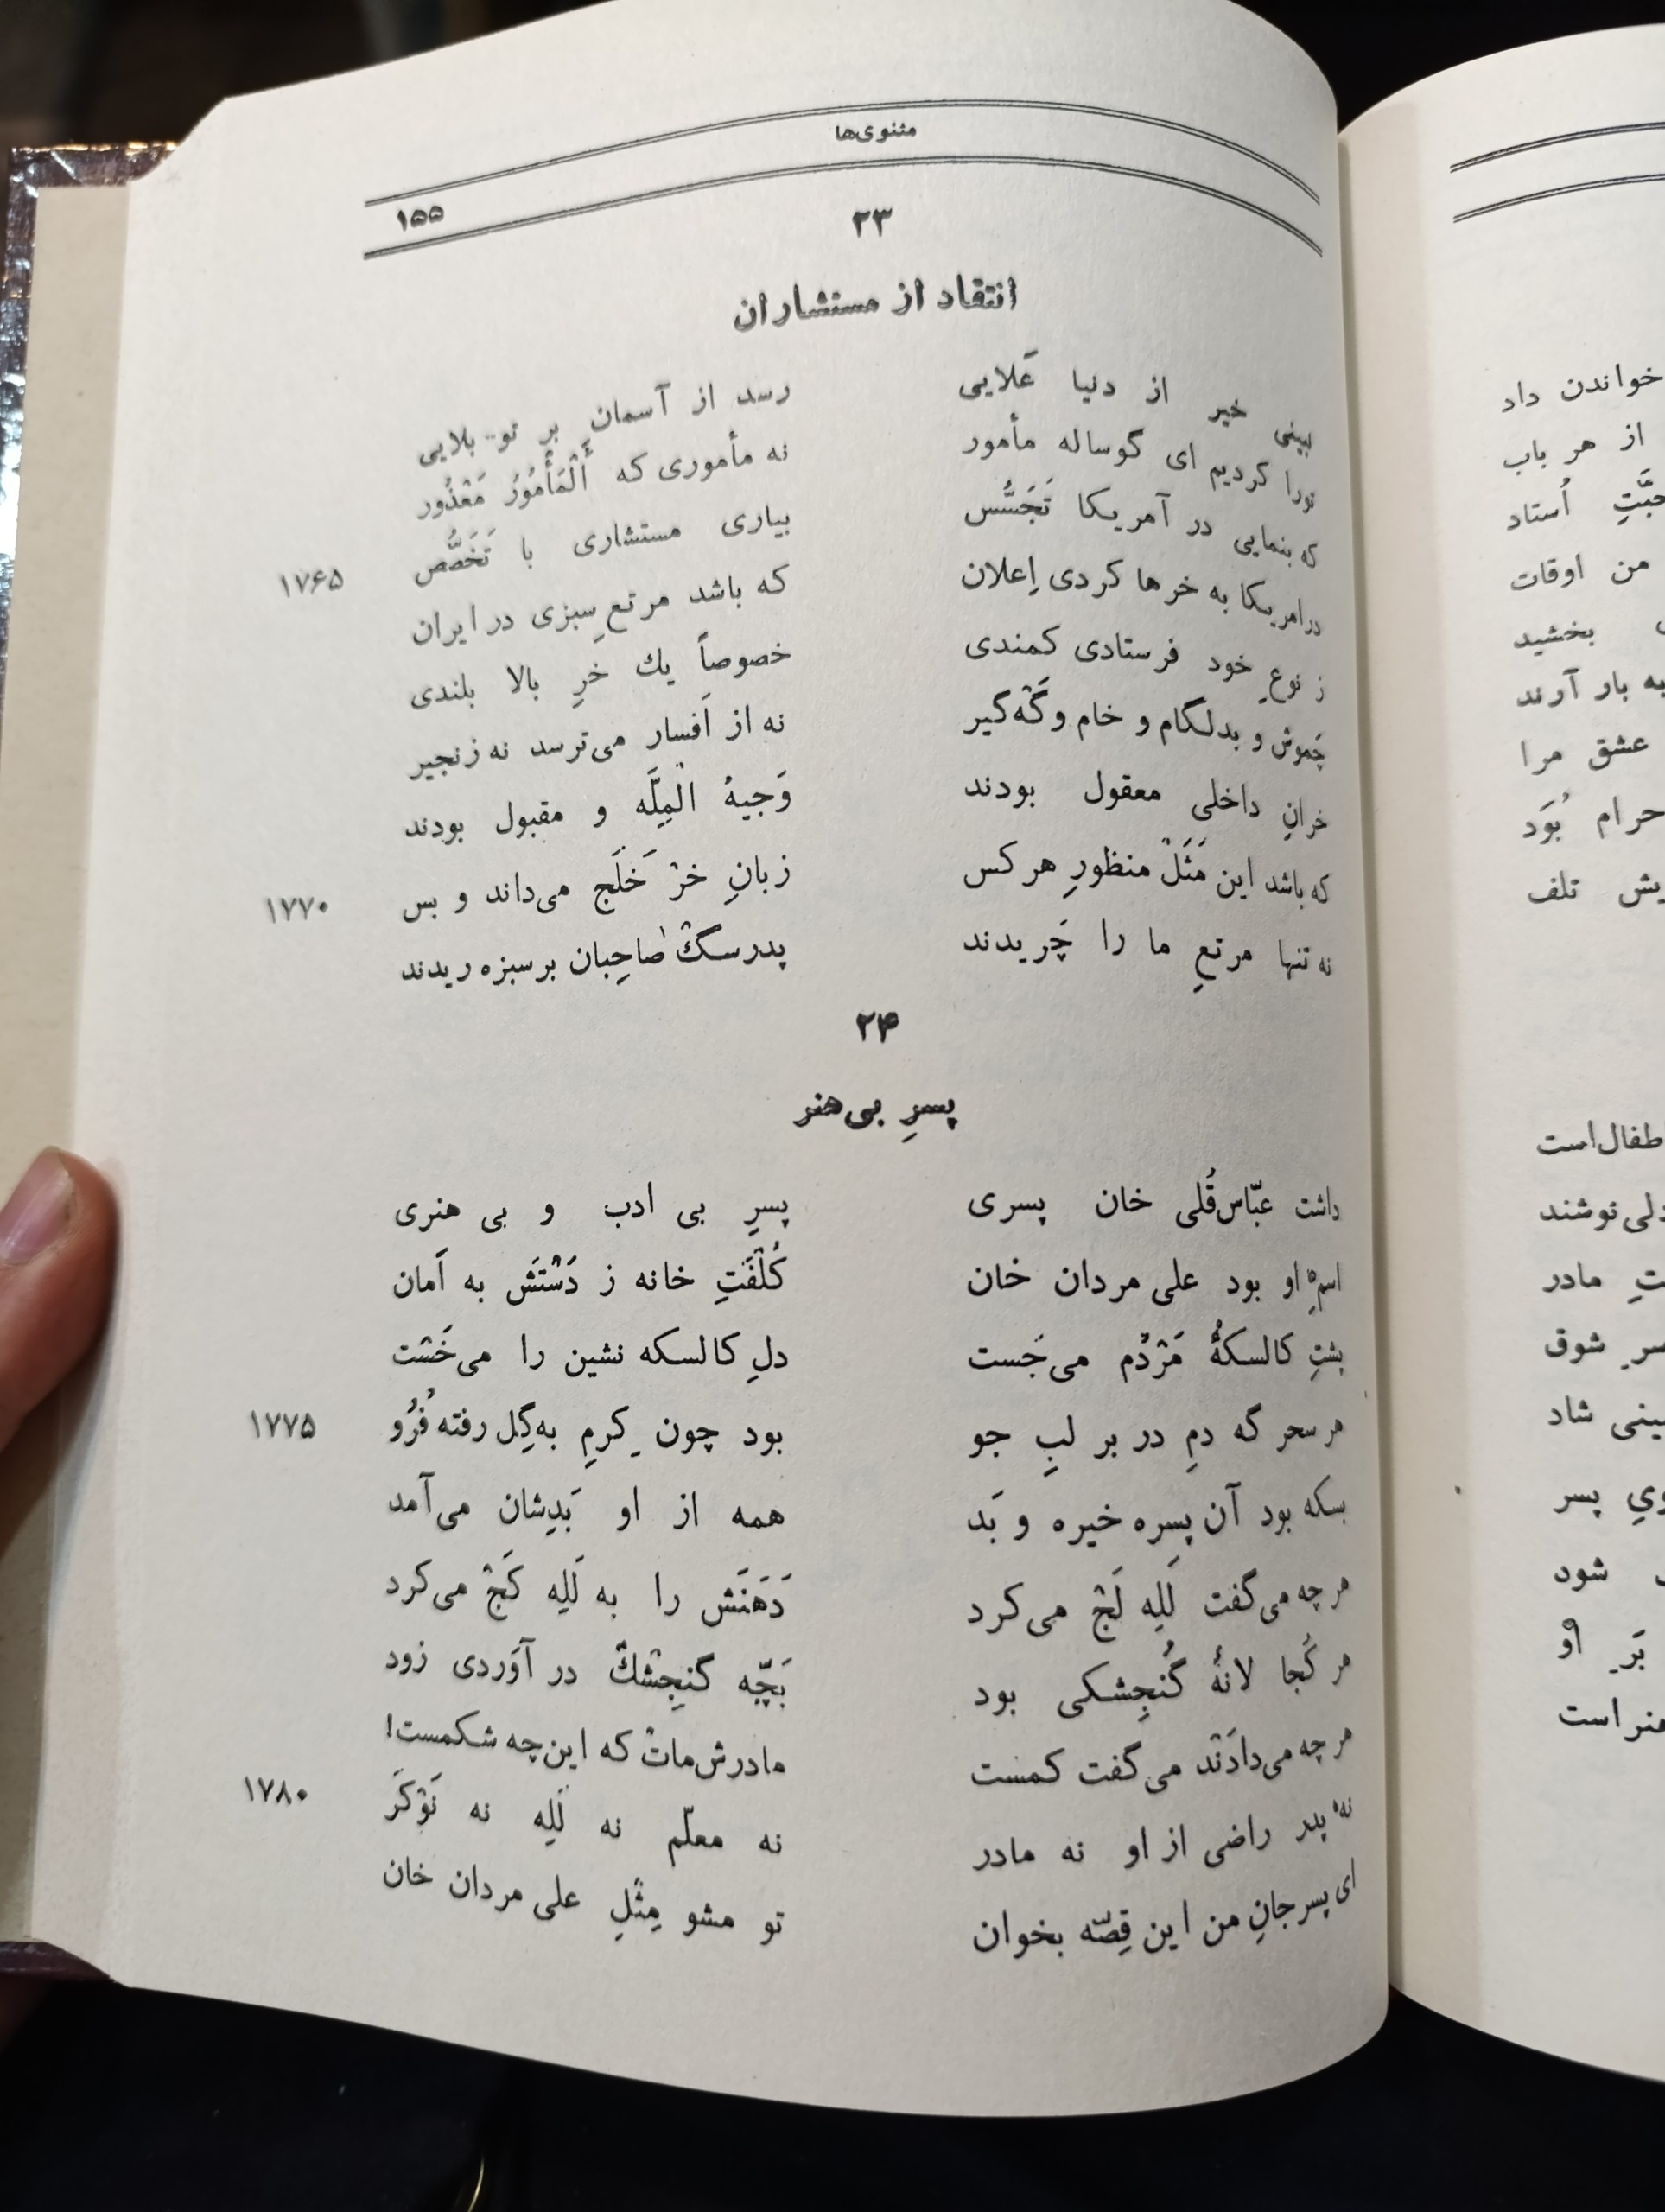 مثنوی‌ها
۱۵۵
۲۳
انتقاد از مستشاران
نبینی خیر از دنیا عَلایی رسد از آسمان بر تو بلایی
تورا کردیم ای گوساله مأمور نه مأموری که أَلْمَأْمُورُ مَعْذُور
که بنمایی در آمریکا تَجَسُّس بیاری مستشاری با تَخَصُّص ۱۷۶۵
درامریکا به خرها کردی اِعلان که باشد مرتعِ سبزی در ایران
ز نوعِ خود فرستادی کمندی خصوصاً یك خرِ بالا بلندی
چَموش و بدلگام و خام و گَه‌گیر نه از اَفسار می‌ترسد نه زنجیر
خرانِ داخلی معقول بودند وَجیهُ الْمِلَّه و مقبول بودند
که باشد این مَثَلْ منظورِ هر کس زبانِ خرْ خَلَج می‌داند و بس ۱۷۷۰
نه تنها مرتعِ ما را چَریدند پدرسگْ صاحِبان بر سبزه ریدند
۲۴
پسرِ بی‌هنر
داشت عبّاس‌قُلی خان پسری پسرِ بی ادب و بی هنری
اسمِ او بود علی مردان خان کُلْفَتِ خانه ز دَسْتَش به اَمان
پشتِ کالسکهٔ مَرْدُم می‌جَست دلِ کالسکه نشین را می‌خَسْت
هر سحر گه دمِ در بر لبِ جو بود چون کِرمِ به‌گِل رفته فُرُو ۱۷۷۵
بسکه بود آن پسره خیره و بَد همه از او بَدِشان می‌آمد
هر چه می‌گفت لَلِه لَجْ می‌کرد دَهَنَش را به لَلِه کَجْ می‌کرد
هر کُجا لانهٔ گُنجِشکی بود بَچّه گنجِشْكْ در آوَردی زود
هر چه می‌دادَنْد می‌گفت کمست مادرش‌ماتْ که این‌چه شکمست!
نه پدر راضی از او نه مادر نه معلّم نه لَلِه نه نَوْکَر ۱۷۸۰
ای پسرجانِ من این قِصّه بخوان تو مشو مِثْلِ علی مردان خان
خواندن داد
از هر باب
اُستاد
من اوقات
بخشید
به بار آرند
عشق مرا
حرام بُوَد
تلف
شوق
مادر
شاد
پسر
شود
بَرِ او